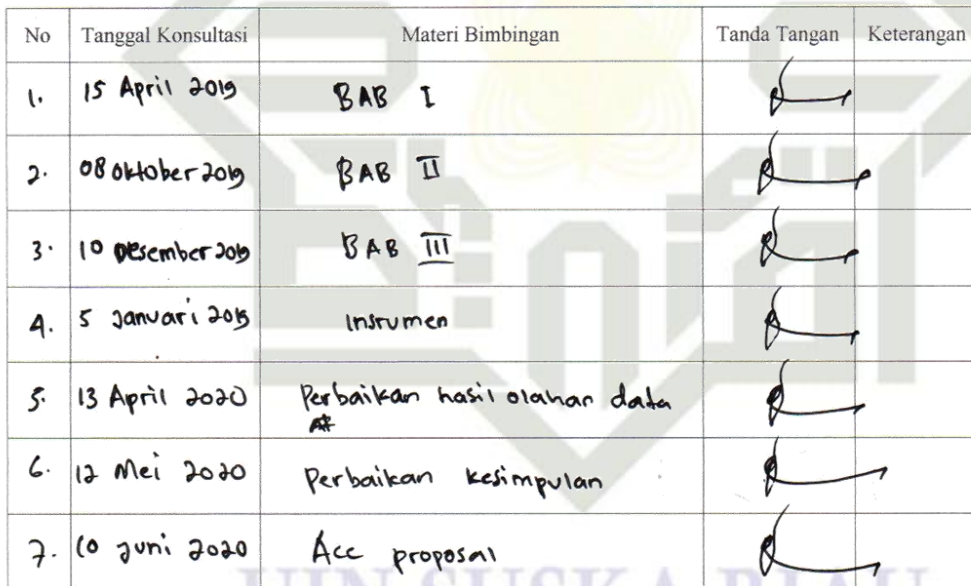 No Tanggal Konsultasi Materi Bimbingan Tanda Tangan Keterangan
1. 15 April 2019 BAB I
2. 08 Oktober 2019 BAB II
3. 10 Desember 2019 BAB III
4. 5 Januari Insrumen
5. 13 April 2020 Perbaikan hasil olahan data
6. 12 Mei 2020 Perbaikan kesimpulan
7. 10 Juni 2020 Acc proposal
UIN SUSKA RIAU